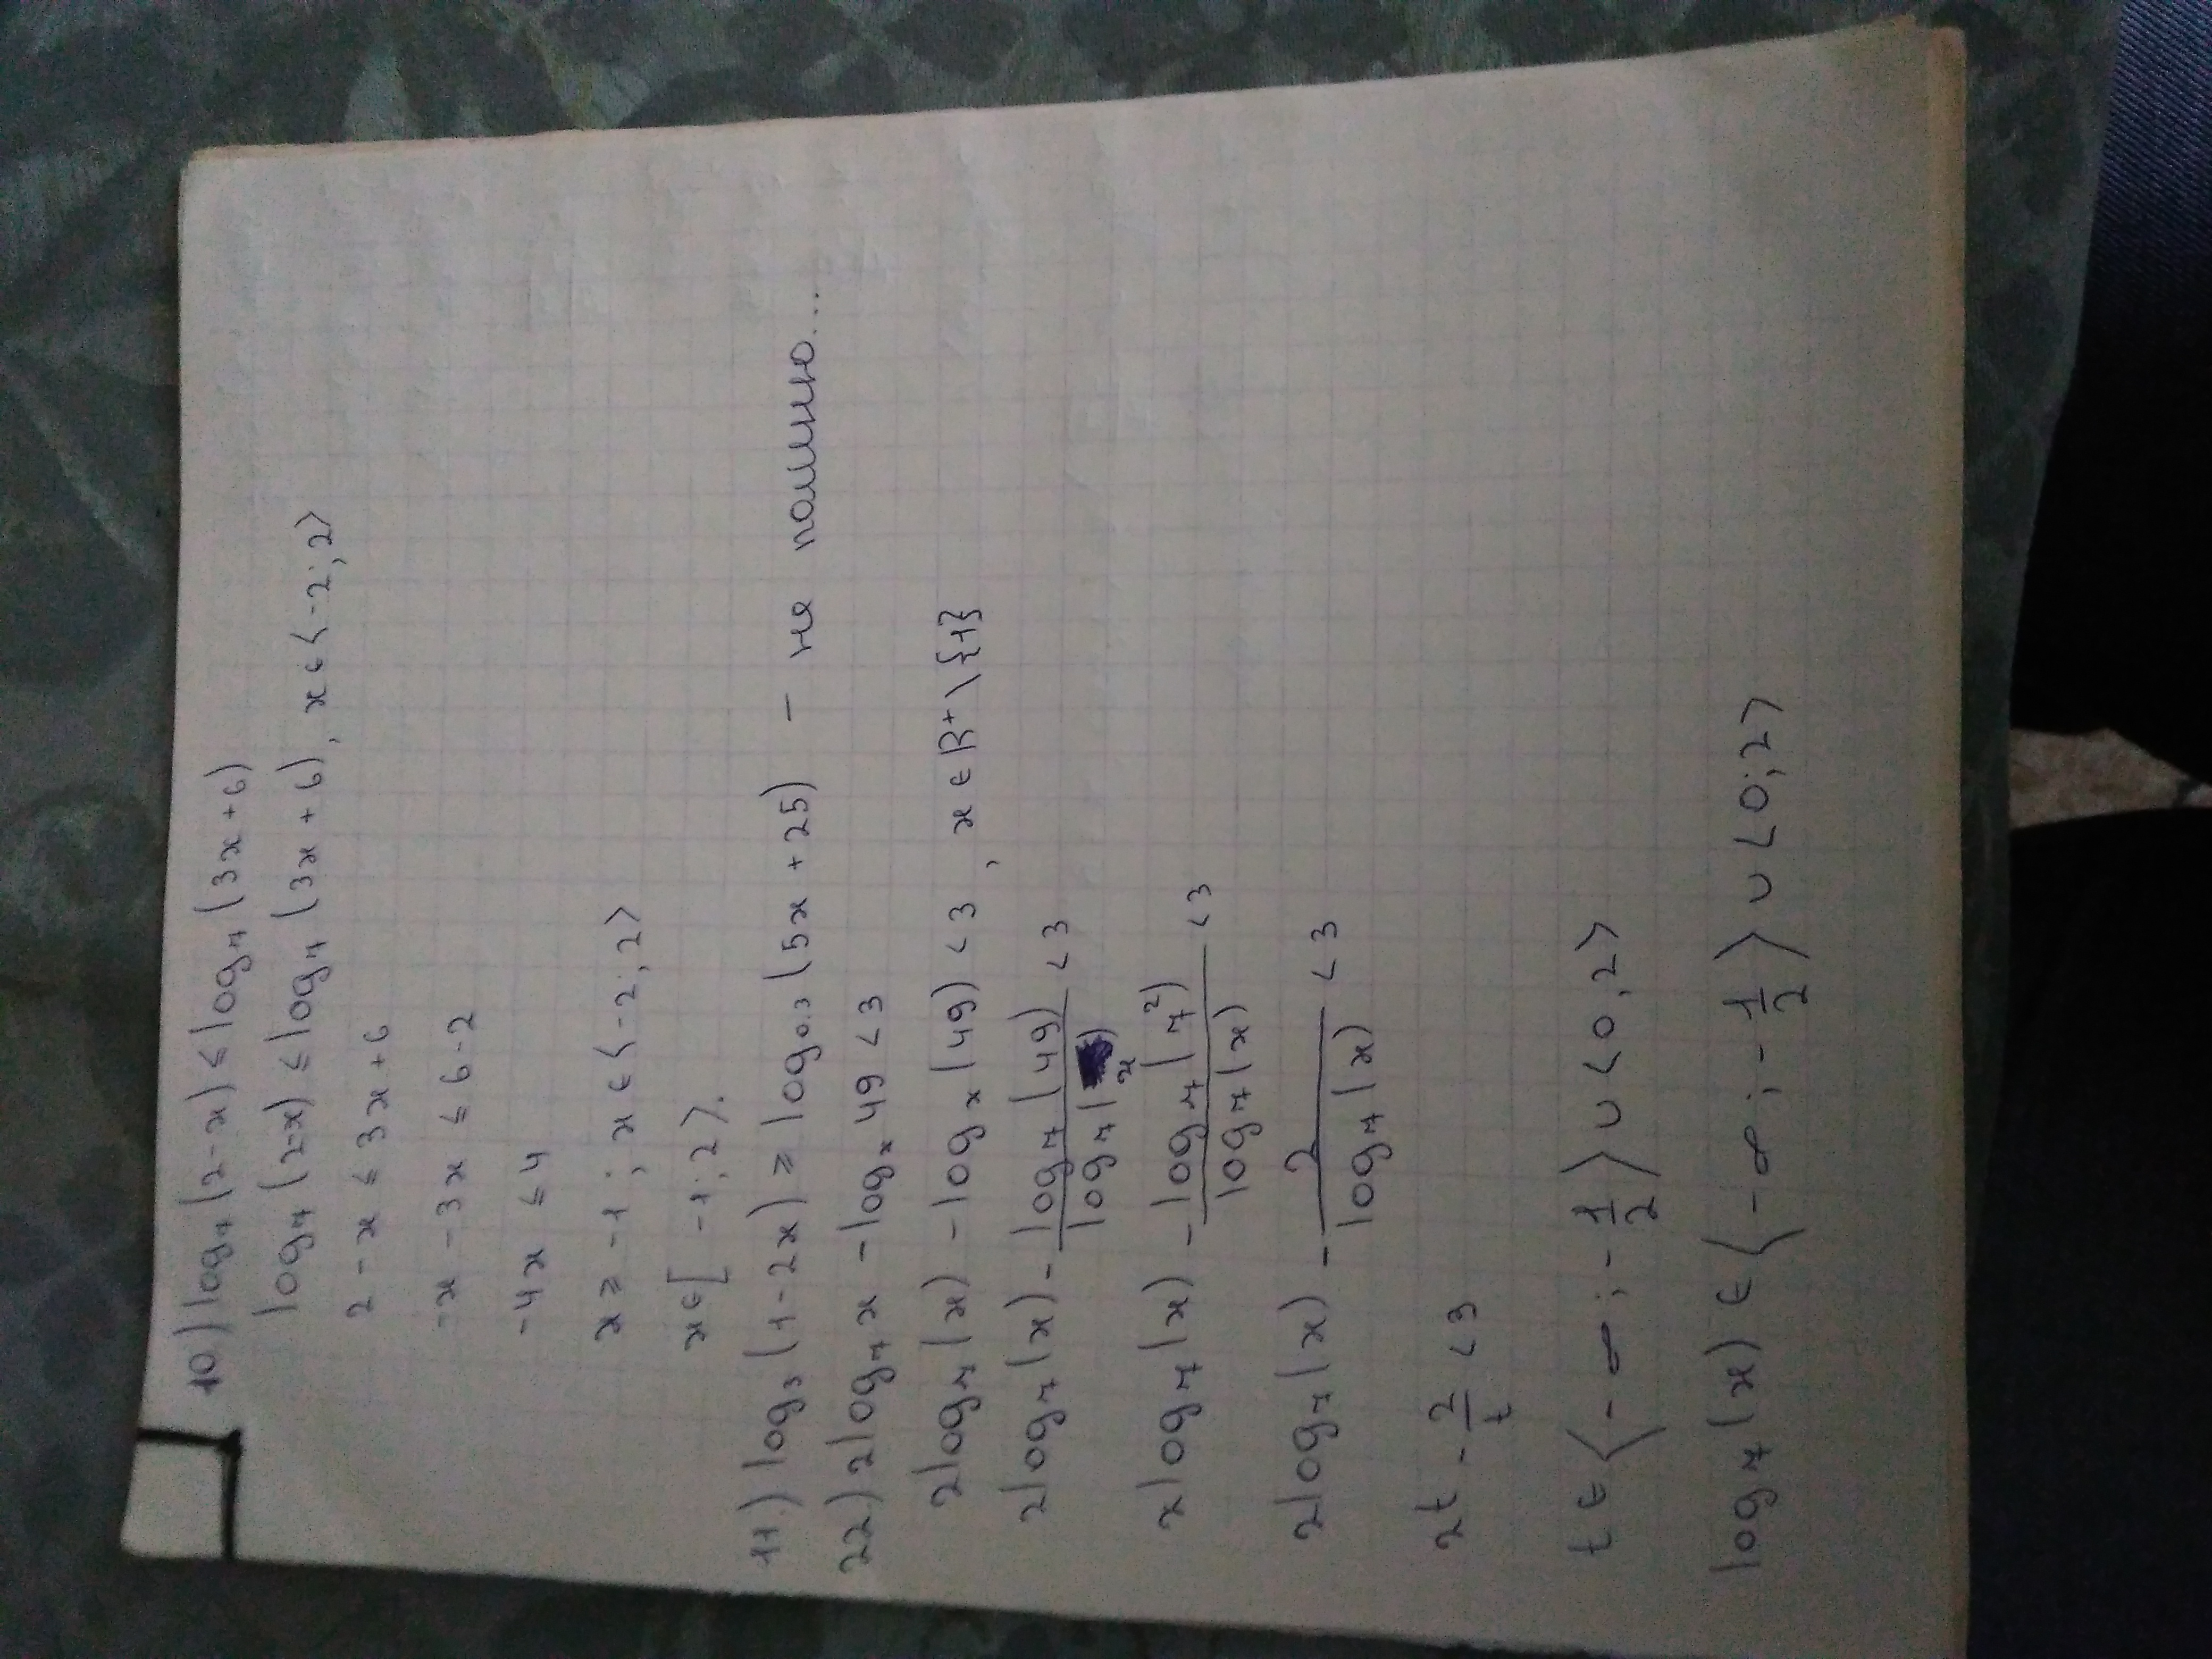 10.) log₇(2-x) ≤ log₇(3x+6)
log₇(2-x) ≤ log₇(3x+6), x∈⟨-2;2⟩
2-x ≤ 3x+6
-x-3x ≤ 6-2
-4x ≤ 4
x ≥ -1; x∈⟨-2;2⟩
x∈[-1;2⟩.
11.) log₃(1-2x) ≥ log₀.₃(5x+25) - не помню...
22.) 2log₇x - logₓ49 < 3
2log₇(x) - logₓ(49) < 3, x∈R⁺\{1}
2log₇(x) - log₇(49)/log₇(x) < 3
2log₇(x) - log₇(7²)/log₇(x) < 3
2log₇(x) - 2/log₇(x) < 3
2t - 2/t < 3
t∈⟨-∞;-1/2⟩∪⟨0,2⟩
log₇(x)∈⟨-∞;-1/2⟩∪⟨0;2⟩